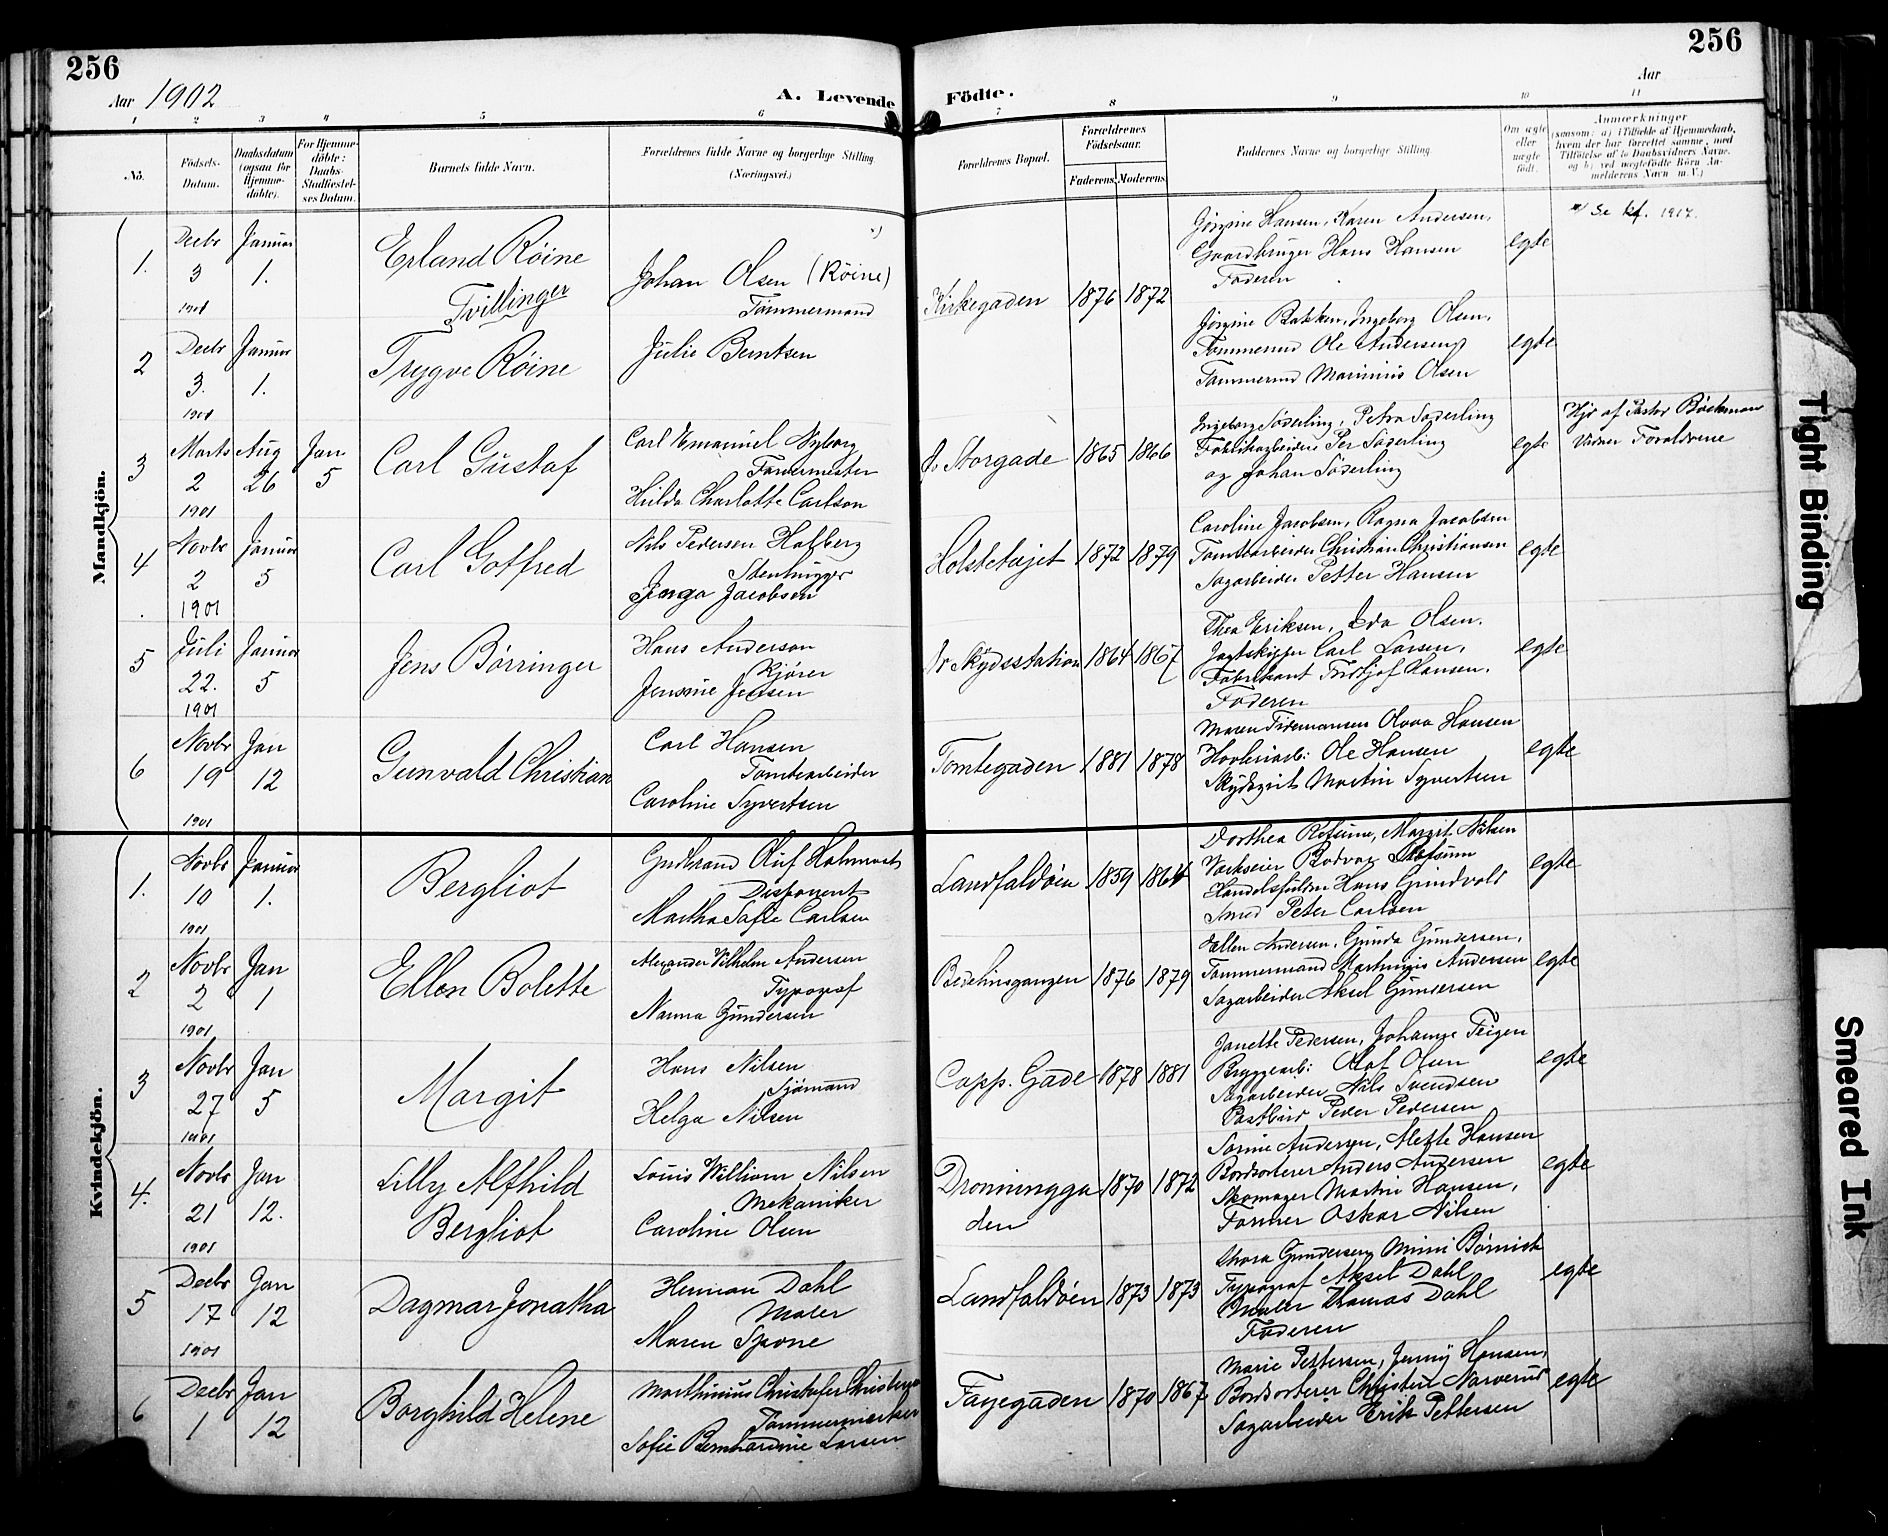 256
256
Aar 1902
A. Levende
Fødte.
Aar
1
2
3
4
5
6
7
8
9
10
11
No.
Fødsels-
Datum.
Daabsdatum
(ogsaa for
Hjemme-
døbte).
For Hjemme-
døbte:
Daabs-
Stadfæstel-
ses Datum.
Barnets fulde Navn.
Forældrenes fulde Navne og borgerlige Stilling
(Næringsvei.)
Forældrenes Bopæl.
Forældrenes
Fødselsaar.
Faderens
Moderens
Faddernes Navne og borgerlige Stilling
Om ægte
eller
uægte
født.
Anmærkninger
(saasom: a) i Tilfælde af Hjemmedaab,
hvem der har forrettet samme, med
Tilføielse af to Daabsvidners Navne,
og b) ved uægtefødte Børn An-
melderens Navn m. V.)
Mandkjøn.
1.
Decbr
3
1901
Januar
1.
Erland Røine
Tvillinger
Johan Olsen (Røine)
Tømmermand
Julie Berntsen
Kirkegaden
1876
1872
Jørgine Hansen, Karen Andersen,
Gaardbruger Hans Hansen
Faderen
egte
Se kf. 1917.
2
Decbr
3.
1901
Januar
1.
Trygve Røine
Jørgine Bakken, Ingeborg Olsen,
Tømmermd Ole Andersen,
Tømmermd Marinius Olsen
egte
3
Marts
2
1901
Aug
26
Jan
5
Carl Gustaf
Carl Emanuel Nyborg
Farvermester
Hulda Charlotte Carlson
Storgade
1865
1866
Ingeborg Søderling, Petra Søderling
Fabrikarbeidere Per Søderling
og Johan Søderling
egte
Hjd af Pastor Böckman
Vidner Forældrene
4
Novbr
2
1901
Januar
5
Carl Gotfred
Nils Pedersen Hafberg
Stenhugger
Jenga Jacobsen
Holstetøjet
1872
1879
Caroline Jacobsen, Ragna Jacobsen
Tomtearbeider Christian Christiansen
Sagarbeider Petter Hansen
egte
5
Juli
22.
1901
Januar
5
Jens Børringer
Hans Anderson
Kjører
Jensine Jensen
Skydsstation
1864
1867
Thea Eriksen, Ida Olsen,
Jagtskipper Carl Larsen,
Fabrikant Fridtjof Hansen,
Faderen
egte
6
Novbr
19
1901
Jan
12
Gunvald Christian
Carl Hansen
Tomtearbeider
Caroline Syvertsen
Tomtegaden
1881
1878
Maren Tidemansen Olava Hansen
Høvleriarb: Ole Hansen
Skydsgut Martin Syvertsen
egte
Kvindekjøn.
1.
Novbr
10
1901
Januar
1.
Bergliot
Gudbrand Oluf Holmvat
Disponent
Martha Sofie Carlsen
Landfaldøen
1859
1864
Dorthea Refsum, Margit Nilsen
Værkseier Bodvar Refsum
Handelsfuldm Hans Grindvold
Smed Peter Carlsen
egte
2
Novbr
2
1901
Jan
1
Ellen Bolette
Alexander Vilhelm Andersen
Typograf
Nanna Gundersen
1876
1879
Ellen Andersen, Gunda Gundersen,
Tømmermand Martinius Andersen
Sagarbeider Aksel Gundersen
egte
3
Novbr
27
1901
Jan
5
Margit
Hans Nilsen
Sjømand
Helga Nilsen
Capp. Gade
1878
1881
Janette Pedersen, Johanne Teigen
Bryggearb: Olaf Olsen
Sagarbeider Nils Svendsen
Postbud Peder Pedersen
egte
4.
Novbr
21
1901
Jan
12.
Lilly Alfhild
Bergliot
Louis William Nilsen
Mekaniker
Caroline Olsen
Dronningga
den
1870
1872
Sorine Andersen, Mette Hansen
Bordsorterer Anders Andersen
Skomager Martin Hansen,
Former Oskar Nilsen
egte
5
Decbr
17
1901
Jan
12
Dagmar Jonatha
Herman Dahl
Maler
Maren Spone
Landfaldøen
1873
1873
Thora Gundersen, Mimi Børnich
Typograf Aksel Dahl
Maler Thomas Dahl
Faderen
egte
6
Decbr
1
Jan
12
Borghild Helene
Marthinius Christofer Christensen
Tømmermærker
Sofie Bernhardine Larsen
Fayegaden
1870
1867
Marie Pettersen, Jenny Hansen,
Bordsorterer Christen Narverud
Sagarbeider Erik Pettersen
egte
Tight Binding
Smeared Ink